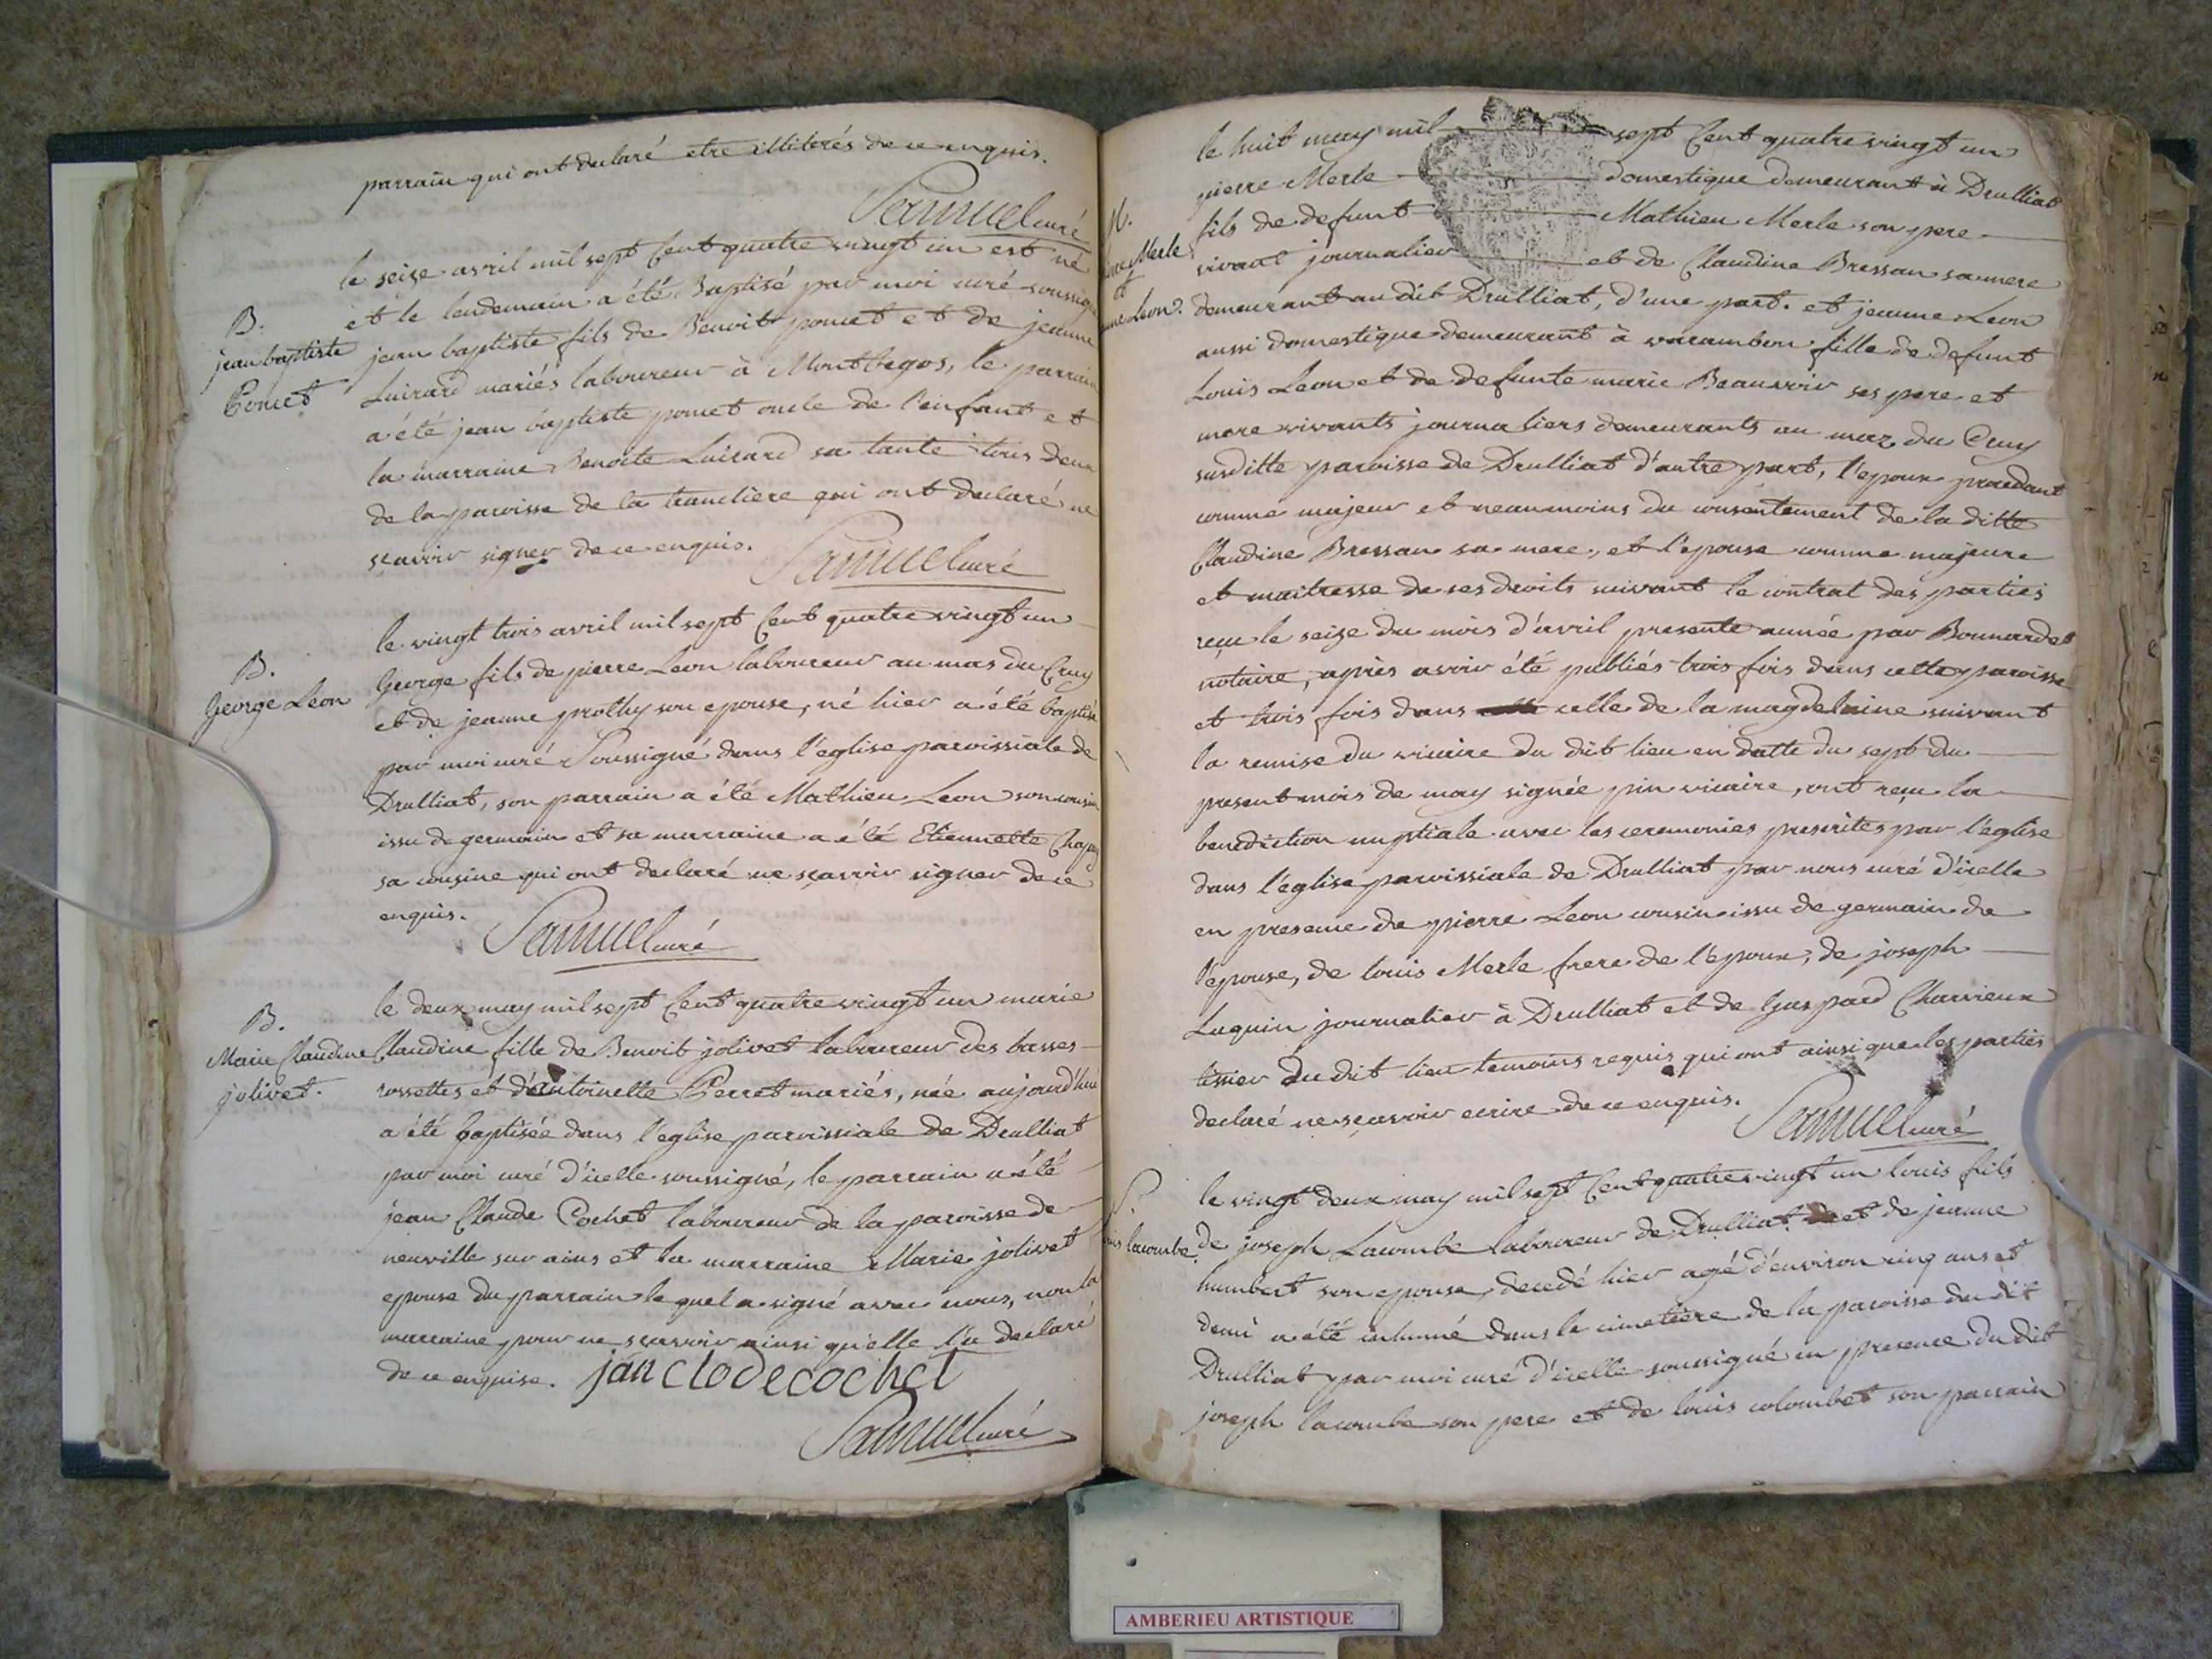 parrain qui ont declaré etre illiterés de ce enquis.
Samuel curé
B.
jean baptiste
Poncet
le seize avril mil sept Cent quatre vingt un est né
et le lendemain a été Baptisé par moi curé soussigné
jean baptiste fils de Benoit poncet et de jeanne
Luirard mariés laboureur à Montbegos, le parrain
a été jean baptiste poncet oncle de l'enfant et
la marraine Benoite Luirard sa tante tous deux
de la paroisse de la tranclière qui ont declaré ne
sçavoir signer de ce enquis.
Samuel curé
B.
George Leon
le vingt trois avril mil sept Cent quatre vingt un
George fils de pierre Leon laboureur au mas du Cruy
et de jeanne prothy son epouse, né hier a été baptisé
par moi curé Soussigné dans l'église paroissiale de
Drulliat, son parrain a été Mathieu Leon son cousin
issu de germain et sa marraine a été Etiennette
sa cousine qui ont declaré ne sçavoir signer de ce
enquis.
Samuel curé
B.
Marie Claudine
jolivet.
le deux may mil sept Cent quatre vingt un marie
Claudine fille de Benoit jolivet laboureur des basses
rossettes et d'antoinette Perret mariés, née aujourd'hui
a été baptisée dans l'eglise paroissiale de Drulliat
par moi curé d'icelle soussigné, le parrain a été
jean Claude Cochet laboureur de la paroisse de
neuville sur ains et la marraine Marie jolivet
epouse du parrain lequel a signé avec nous, non la
marraine pour ne sçavoir ainsi qu'elle l'a declaré
de ce enquise. jan clode cochet
Samuel curé
M.
Merle
et
Leon.
le huit may mil sept Cent quatre vingt un
pierre Merle domestique demeurant à Drulliat
fils de defunt Mathieu Merle son pere
vivant journalier et de Claudine Bressan sa mere
demeurant au dit Drulliat, d'une part. et jeanne Leon
aussi domestique demeurant à varambon fille de defunt
Louis Leon et de defunte marie Beauvoir ses pere et
mere vivants journaliers demeurants au maz du Cruy
susditte paroisse de Drulliat d'autre part, l'epoux procedant
comme majeur et neanmoins du consentement de la ditte
Claudine Bressan sa mere, et l'epouse comme majeure
et maitresse de ses droits suivant le contrat des parties
reçu le seize du mois d'avril presente année par Bonnardet
notaire, après avoir été publiés trois fois dans cette paroisse
et trois fois dans celle de la magdelaine suivant
la remise du vicaire du dit lieu en datte du sept du
present mois de may signée pin vicaire, ont reçu la
benediction nuptiale avec les ceremonies prescrites par l'église
dans l'église paroissiale de Drulliat par nous curé d'icelle
en presence de pierre Leon cousin issu de germain de
l'epouse, de louis Merle frere de l'epoux, de joseph
Luquin journalier à Drulliat et de Gaspard Charvieux
tissier du dit lieu temoins requis qui ont ainsi que les parties
declaré ne sçavoir ecrire de ce enquis.
Samuel curé
S.
lacombe.
le vingt deux may mil sept Cent quatre vingt un louis fils
de joseph Lacombe laboureur de Drulliat et de jeanne
humbert son epouse, decedé hier agé d'environ cinq ans et
demi a été inhumé dans le cimetière de la paroisse du dit
Drulliat par moi curé d'icelle soussigné en presence du dit
joseph lacombe son pere et de louis colombet son parrain
AMBERIEU ARTISTIQUE